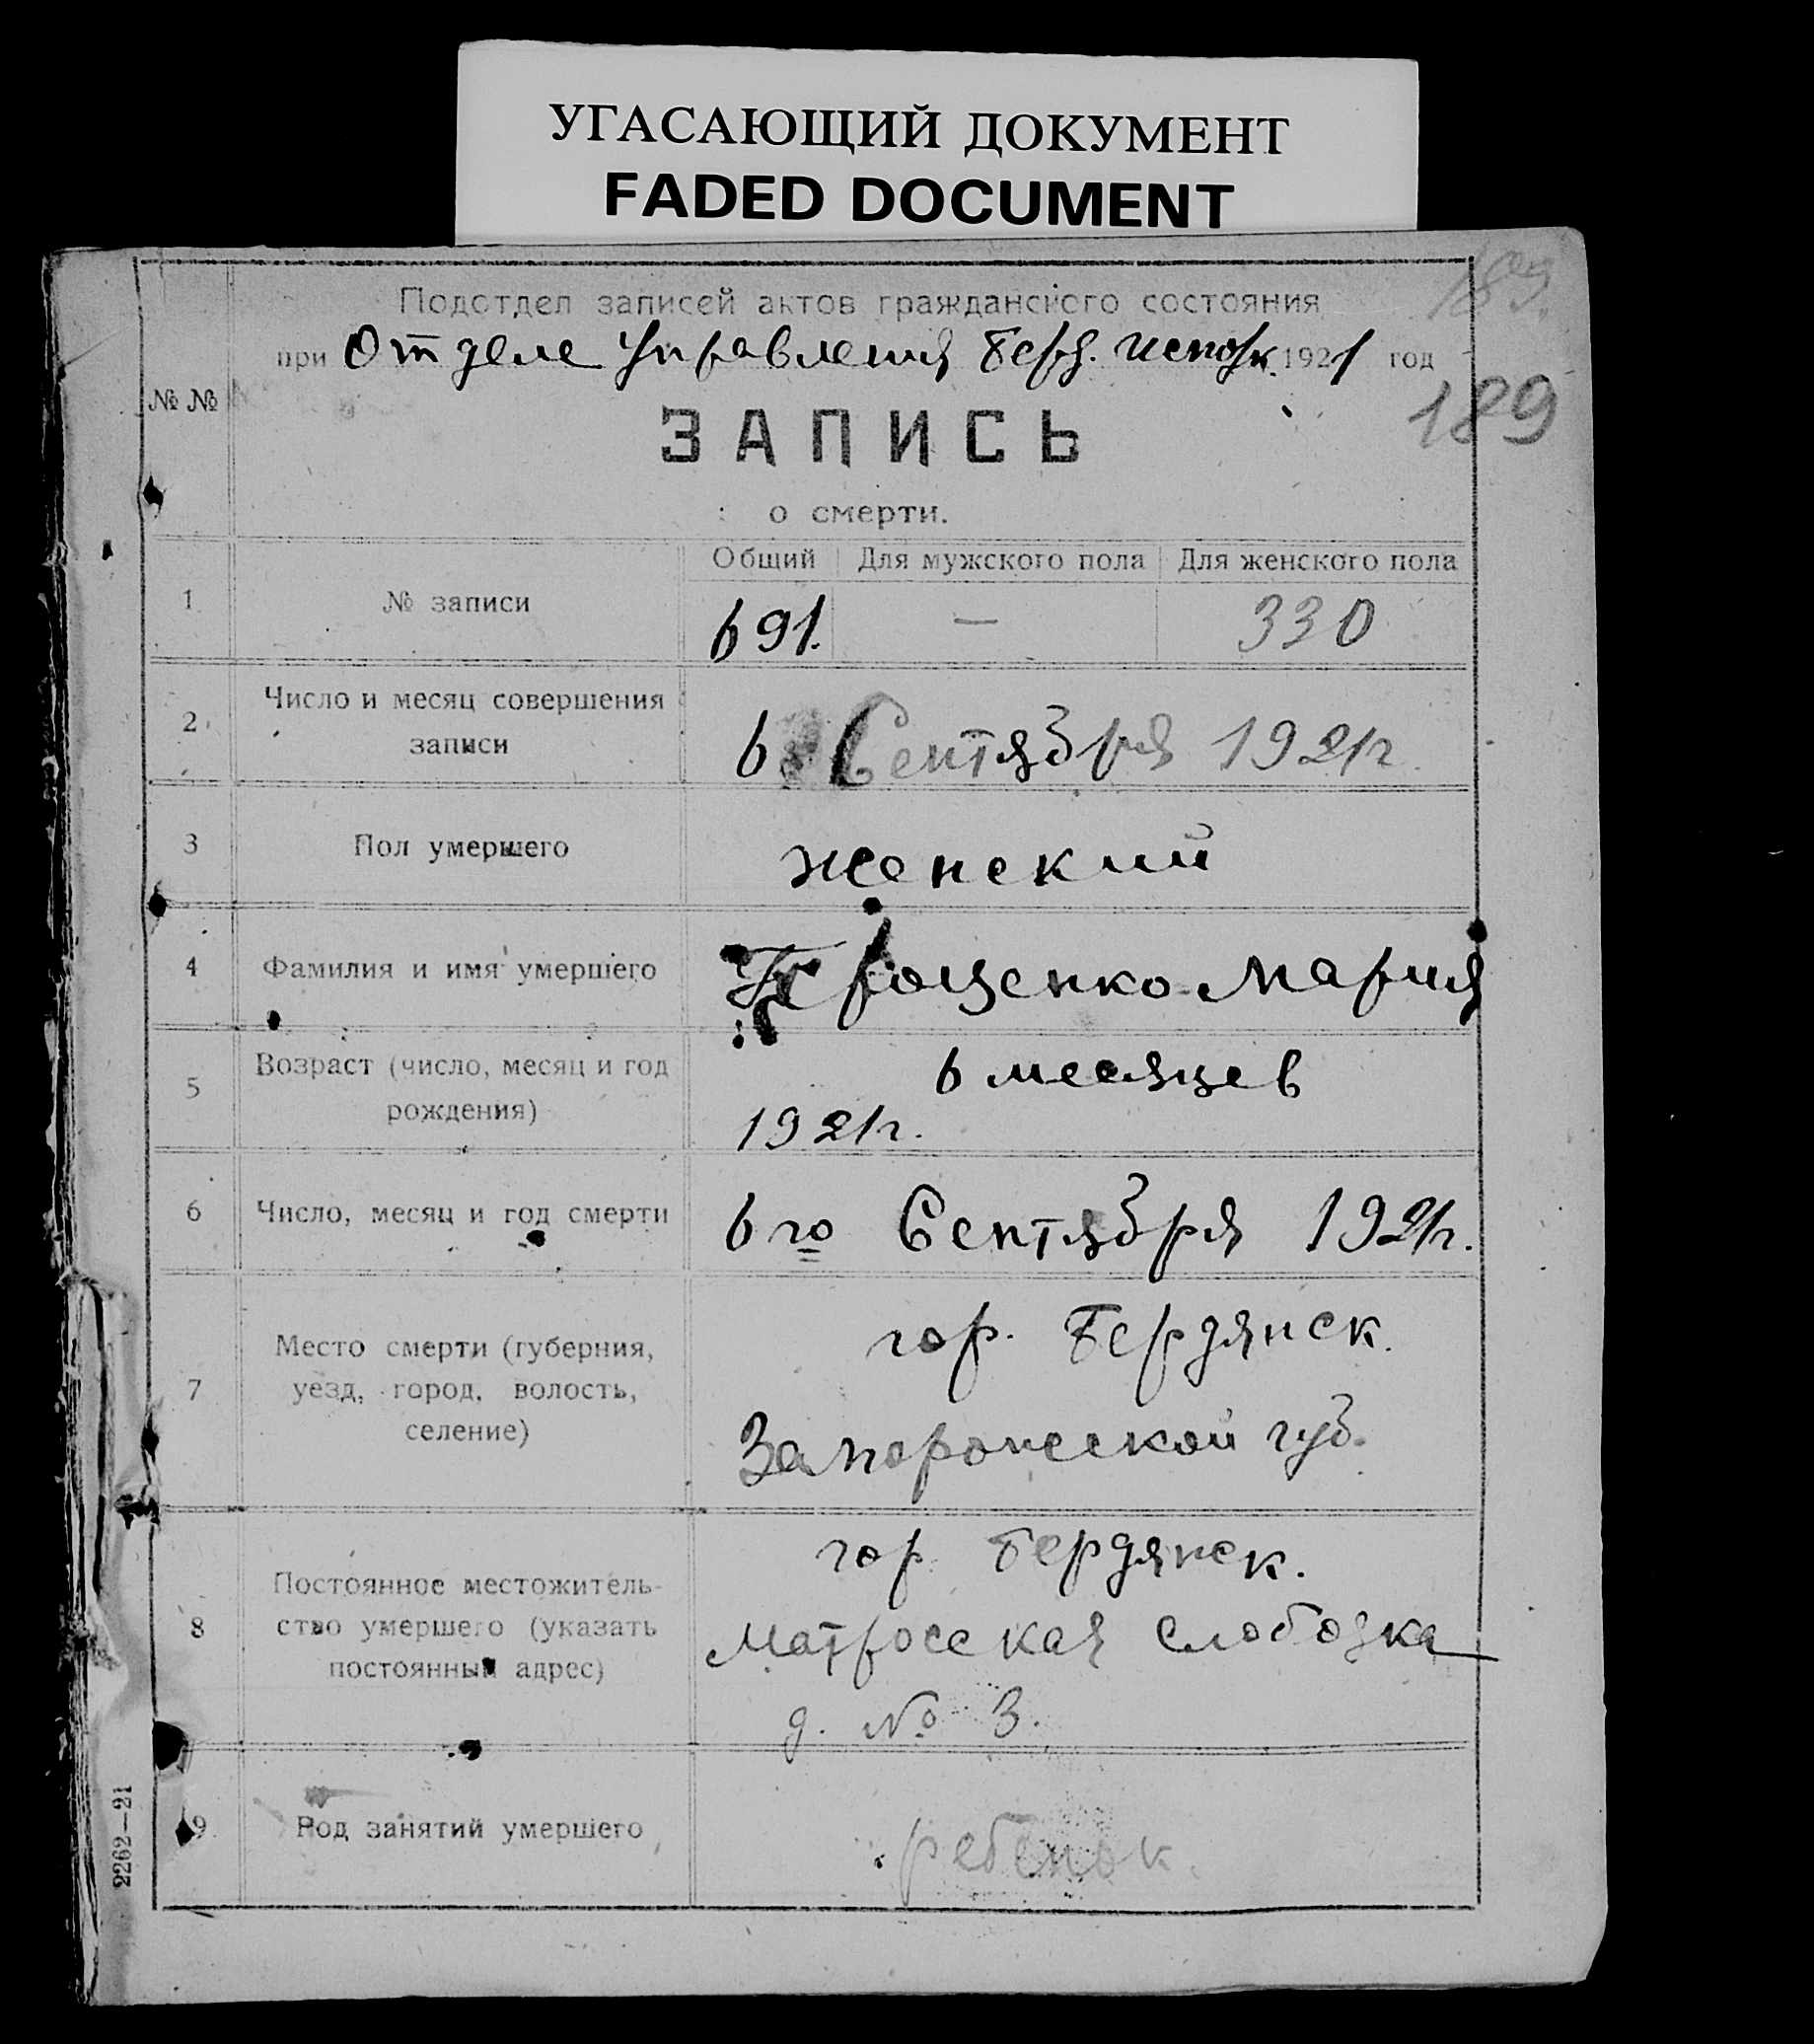 УГАСАЮЩИЙ ДОКУМЕНТ
FADED DOCUMENT
189.
Подотдел записей актов гражданского состояния
при Отделе Управления Берд. Исполк. 1921 год
189
№ №
ЗАПИСЬ
о смерти.
Общий Для мужского пола Для женского пола
1 № записи 691. — 330
2 Число и месяц совершения
записи
6 Сентября 1921г.
3 Пол умершего женский
4 Фамилия и имя умершего Мария
5 Возраст (число, месяц и год
рождения)
6 месяцев
1921г.
6 Число, месяц и год смерти 6го Сентября 1921г.
7 Место смерти (губерния,
уезд, город, волость,
селение)
гор. Бердянск.
Запорожской губ.
8 Постоянное местожитель-
ство умершего (указать
постоянный адрес)
гор. Бердянск.
Матросская Слободка
д. № 3.
9 Род занятий умершего ребенок.
2262—21